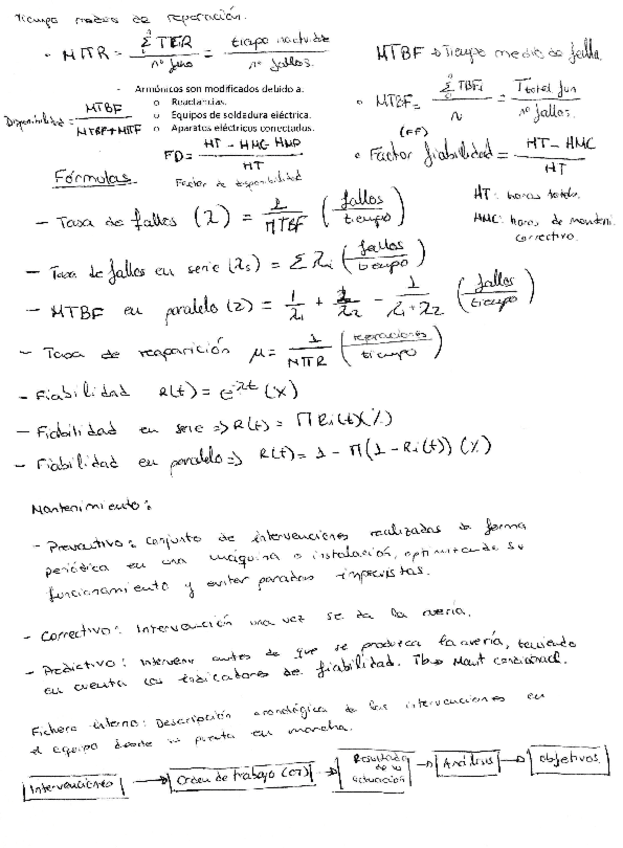 Tiempo medio de reparación.
- MTTR = Σ TTR / nº = tiempo / nº fallos.
MTBF → Tiempo medio de falla.
- Armónicos son modificados debido a:
o Reactancias.
o Equipos de soldadura eléctrica.
o Aparatos eléctricos conectados.
Disponibilidad = MTBF / MTBF+MTTR
• MTBF = Σ TBFi / n = T total fun / nº fallos.
FD = HT - HMC - HMP / HT
Factor de disponibilidad
(FF)
• Factor fiabilidad = HT - HMC / HT
HT: horas total.
HMC: horas de manteni.
correctivo.
Fórmulas
- Tasa de fallos (λ) = 1 / MTBF (fallos / tiempo)
- Tasa de fallos en serie (λs) = Σ λi (fallos / tiempo)
- MTBF en paralelo (2) = 1/λ1 + 1/λ2 - 1/λ1+λ2 (fallos / tiempo)
- Tasa de reaparición μ = 1 / MTTR (reparaciones / tiempo)
- Fiabilidad R(t) = e^-λt (%)
- Fiabilidad en serie => R(t) = Π Ri(t) (%)
- Fiabilidad en paralelo => R(t) = 1 - Π(1 - Ri(t)) (%)
Mantenimiento:
- Preventivo: conjunto de intervenciones realizadas de forma
periódica en una máquina o instalación, optimizando su
funcionamiento y evitar paradas imprevistas.
- Correctivo: Intervención una vez se da la avería.
- Predictivo: Intervenir antes de que se produzca la avería, teniendo
en cuenta los indicadores de fiabilidad. Tb → Mant condicional.
Fichero interno: Descripción cronológica de las intervenciones en
el equipo desde su puesta en marcha.
Intervenciones → Orden de trabajo (OT) → Resultado de su actuación → Análisis → objetivos.